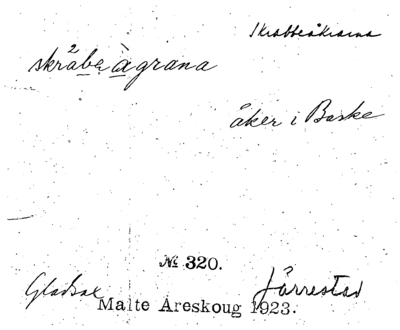 Skrabbeåkrarna
skråbeàgrana
åker i Baske
№ 320.
Gladsax Järrestad
Malte Areskoug 1923.